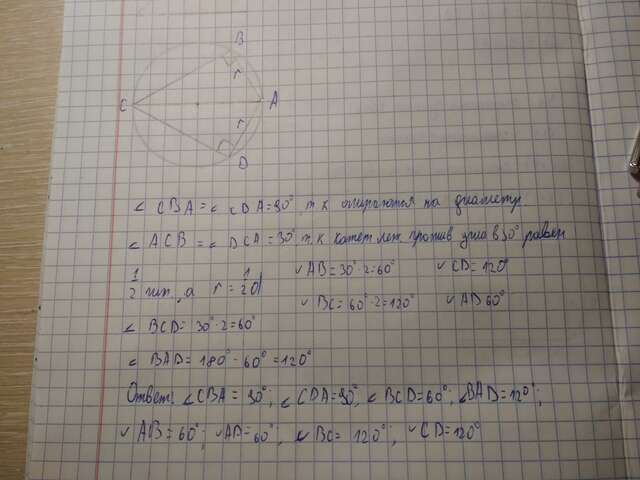 B
r
C
A
r
D
∠ CBA = ∠ CDA = 90° т.к опираются на диаметр
∠ ACB = ∠ DCA = 30° т.к катет леж. против угла в 30° равен
1/2 гип., а r = 1/2 d
◡ AB = 30°·2 = 60° ◡ CD = 120°
◡ BC = 60°·2 = 120° ◡ AD 60°
∠ BCD = 30°·2 = 60°
∠ BAD = 180° - 60° = 120°
Ответ: ∠CBA = 90°; ∠CDA = 90°, ∠BCD = 60°; ∠BAD = 120°;
◡ AB = 60°; ◡AD = 60°; ◡ BC = 120°; ◡ CD = 120°